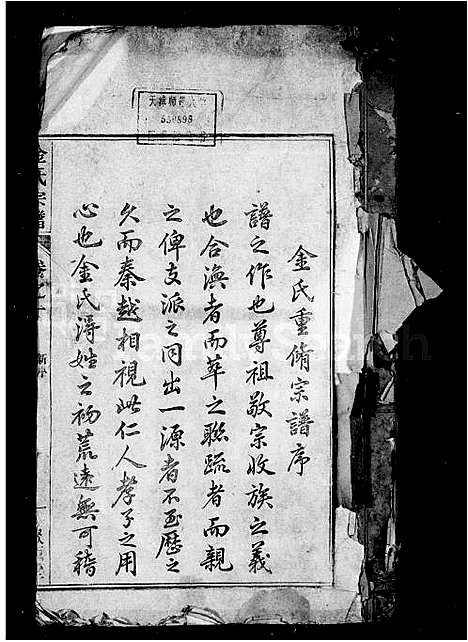 金氏重脩宗譜序
譜之作也尊祖敬宗收族之義
也合渙者而萃之聯疏者而親
之俾支派之同出一源者不至歷之
久而秦越相視此仁人孝子之用
心也金氏淂姓之初荒遠無可稽
金氏宗譜
天津師範大
538898